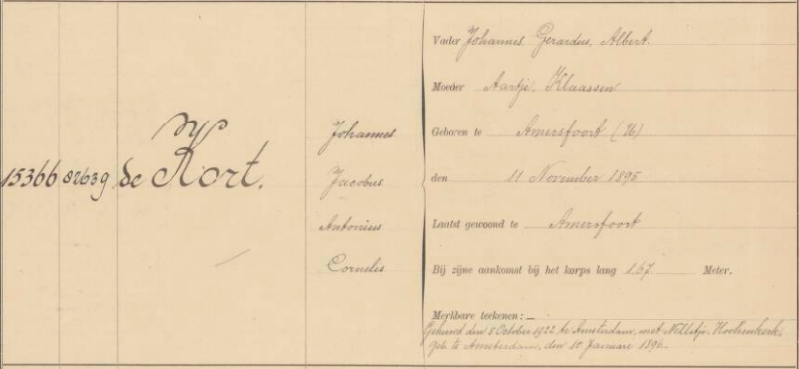 Vader Johannes, Gerardus, Albert.
Moeder Aartje, Klaassen
Johannes
Geboren te Amersfoort (U)
15366 82639 de Kort.
Jacobus
den 11 November 1895
Antonius
Laatst gewoond te Amersfoort
Cornelis
Bij zijne aankomst bij het korps lang 1.67 Meter.
Merkbare teekenen: —
Gehuwd den 8 October 1922 te Amsterdam, met Nelletje
geb. te Amsterdam, den 10 Januari 1896.